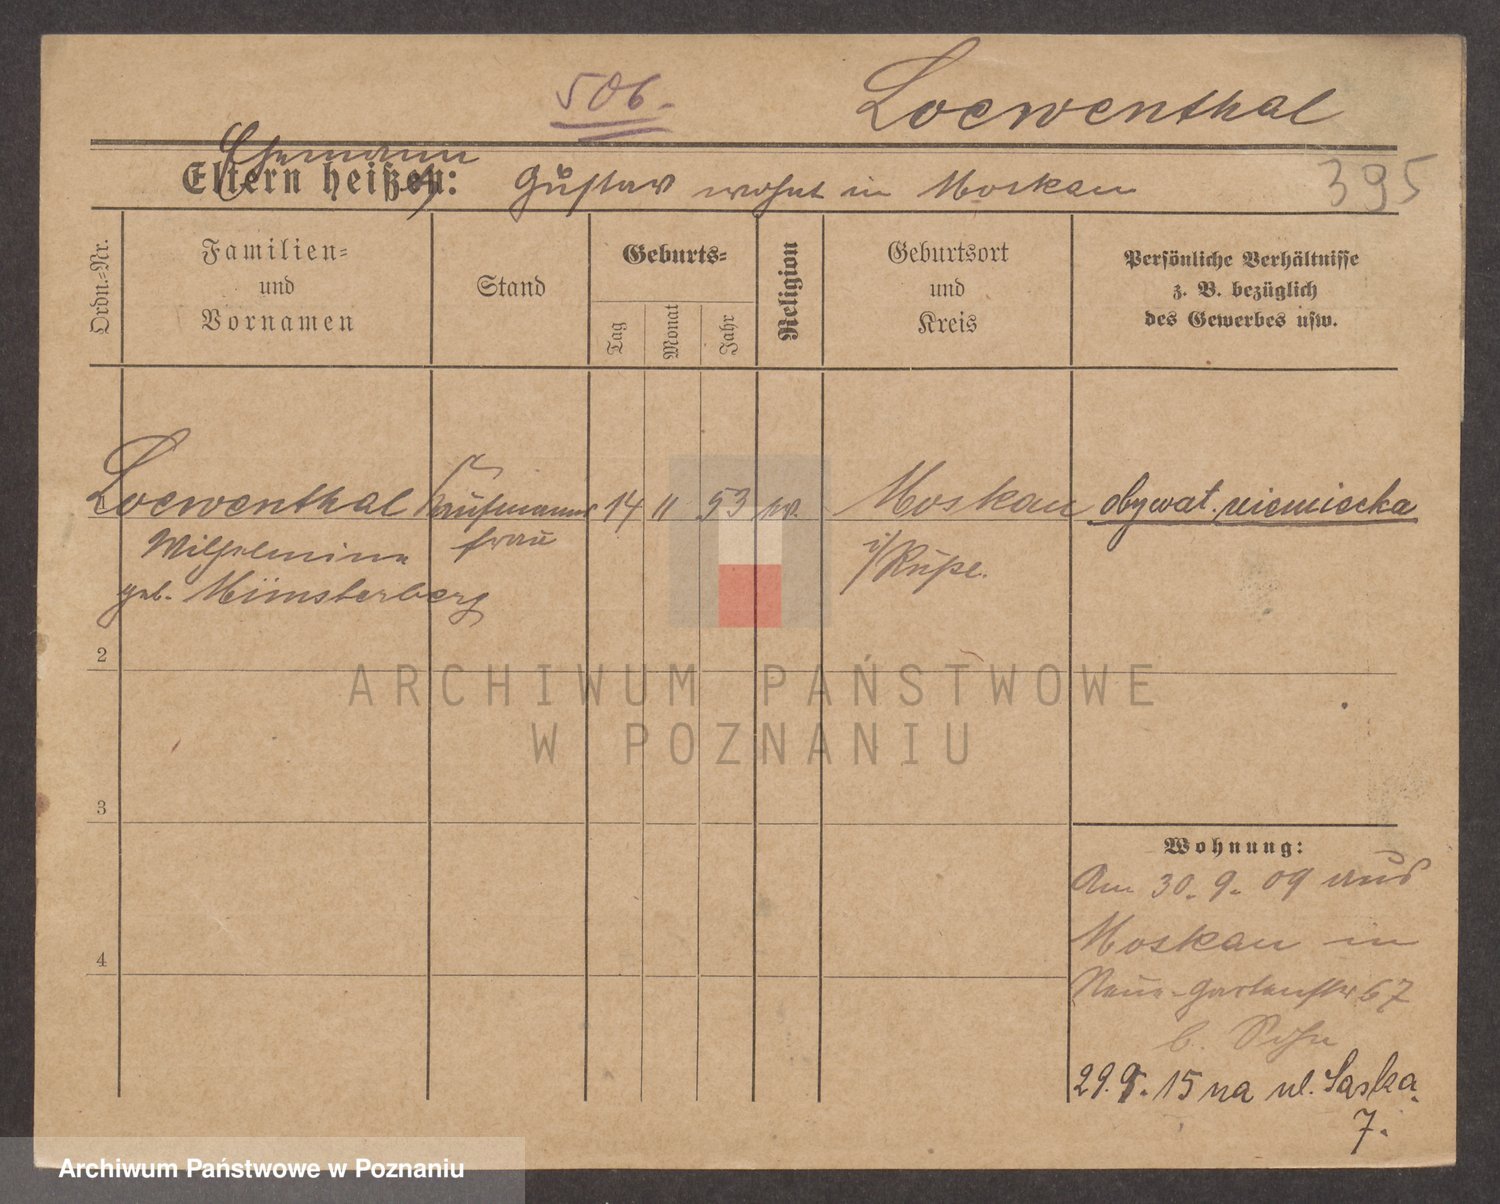 506.
Loewenthal
Ehemann
Eltern heißen: Gustav wohnt in Moskau
395
Ordn.-Nr.
Familien-
und
Vornamen
Stand
Geburts-
Tag
Monat
Jahr
Religion
Geburtsort
und
Kreis
Persönliche Verhältnisse
z. B. bezüglich
des Gewerbes usw.
Loewenthal Kaufmanns 14 11 53 Moskau obywat. niemiecka
Wilhelmine frau i/Russl.
geb. Münsterberg
2
3
4
Wohnung:
Am 30. 9. 09 aus
Moskau in
Neue-Gartenstr 67
b. Sohn
29. 9. 15 na ul. Saska
7.
ARCHIWUM PAŃSTWOWE
W POZNANIU
Archiwum Państwowe w Poznaniu